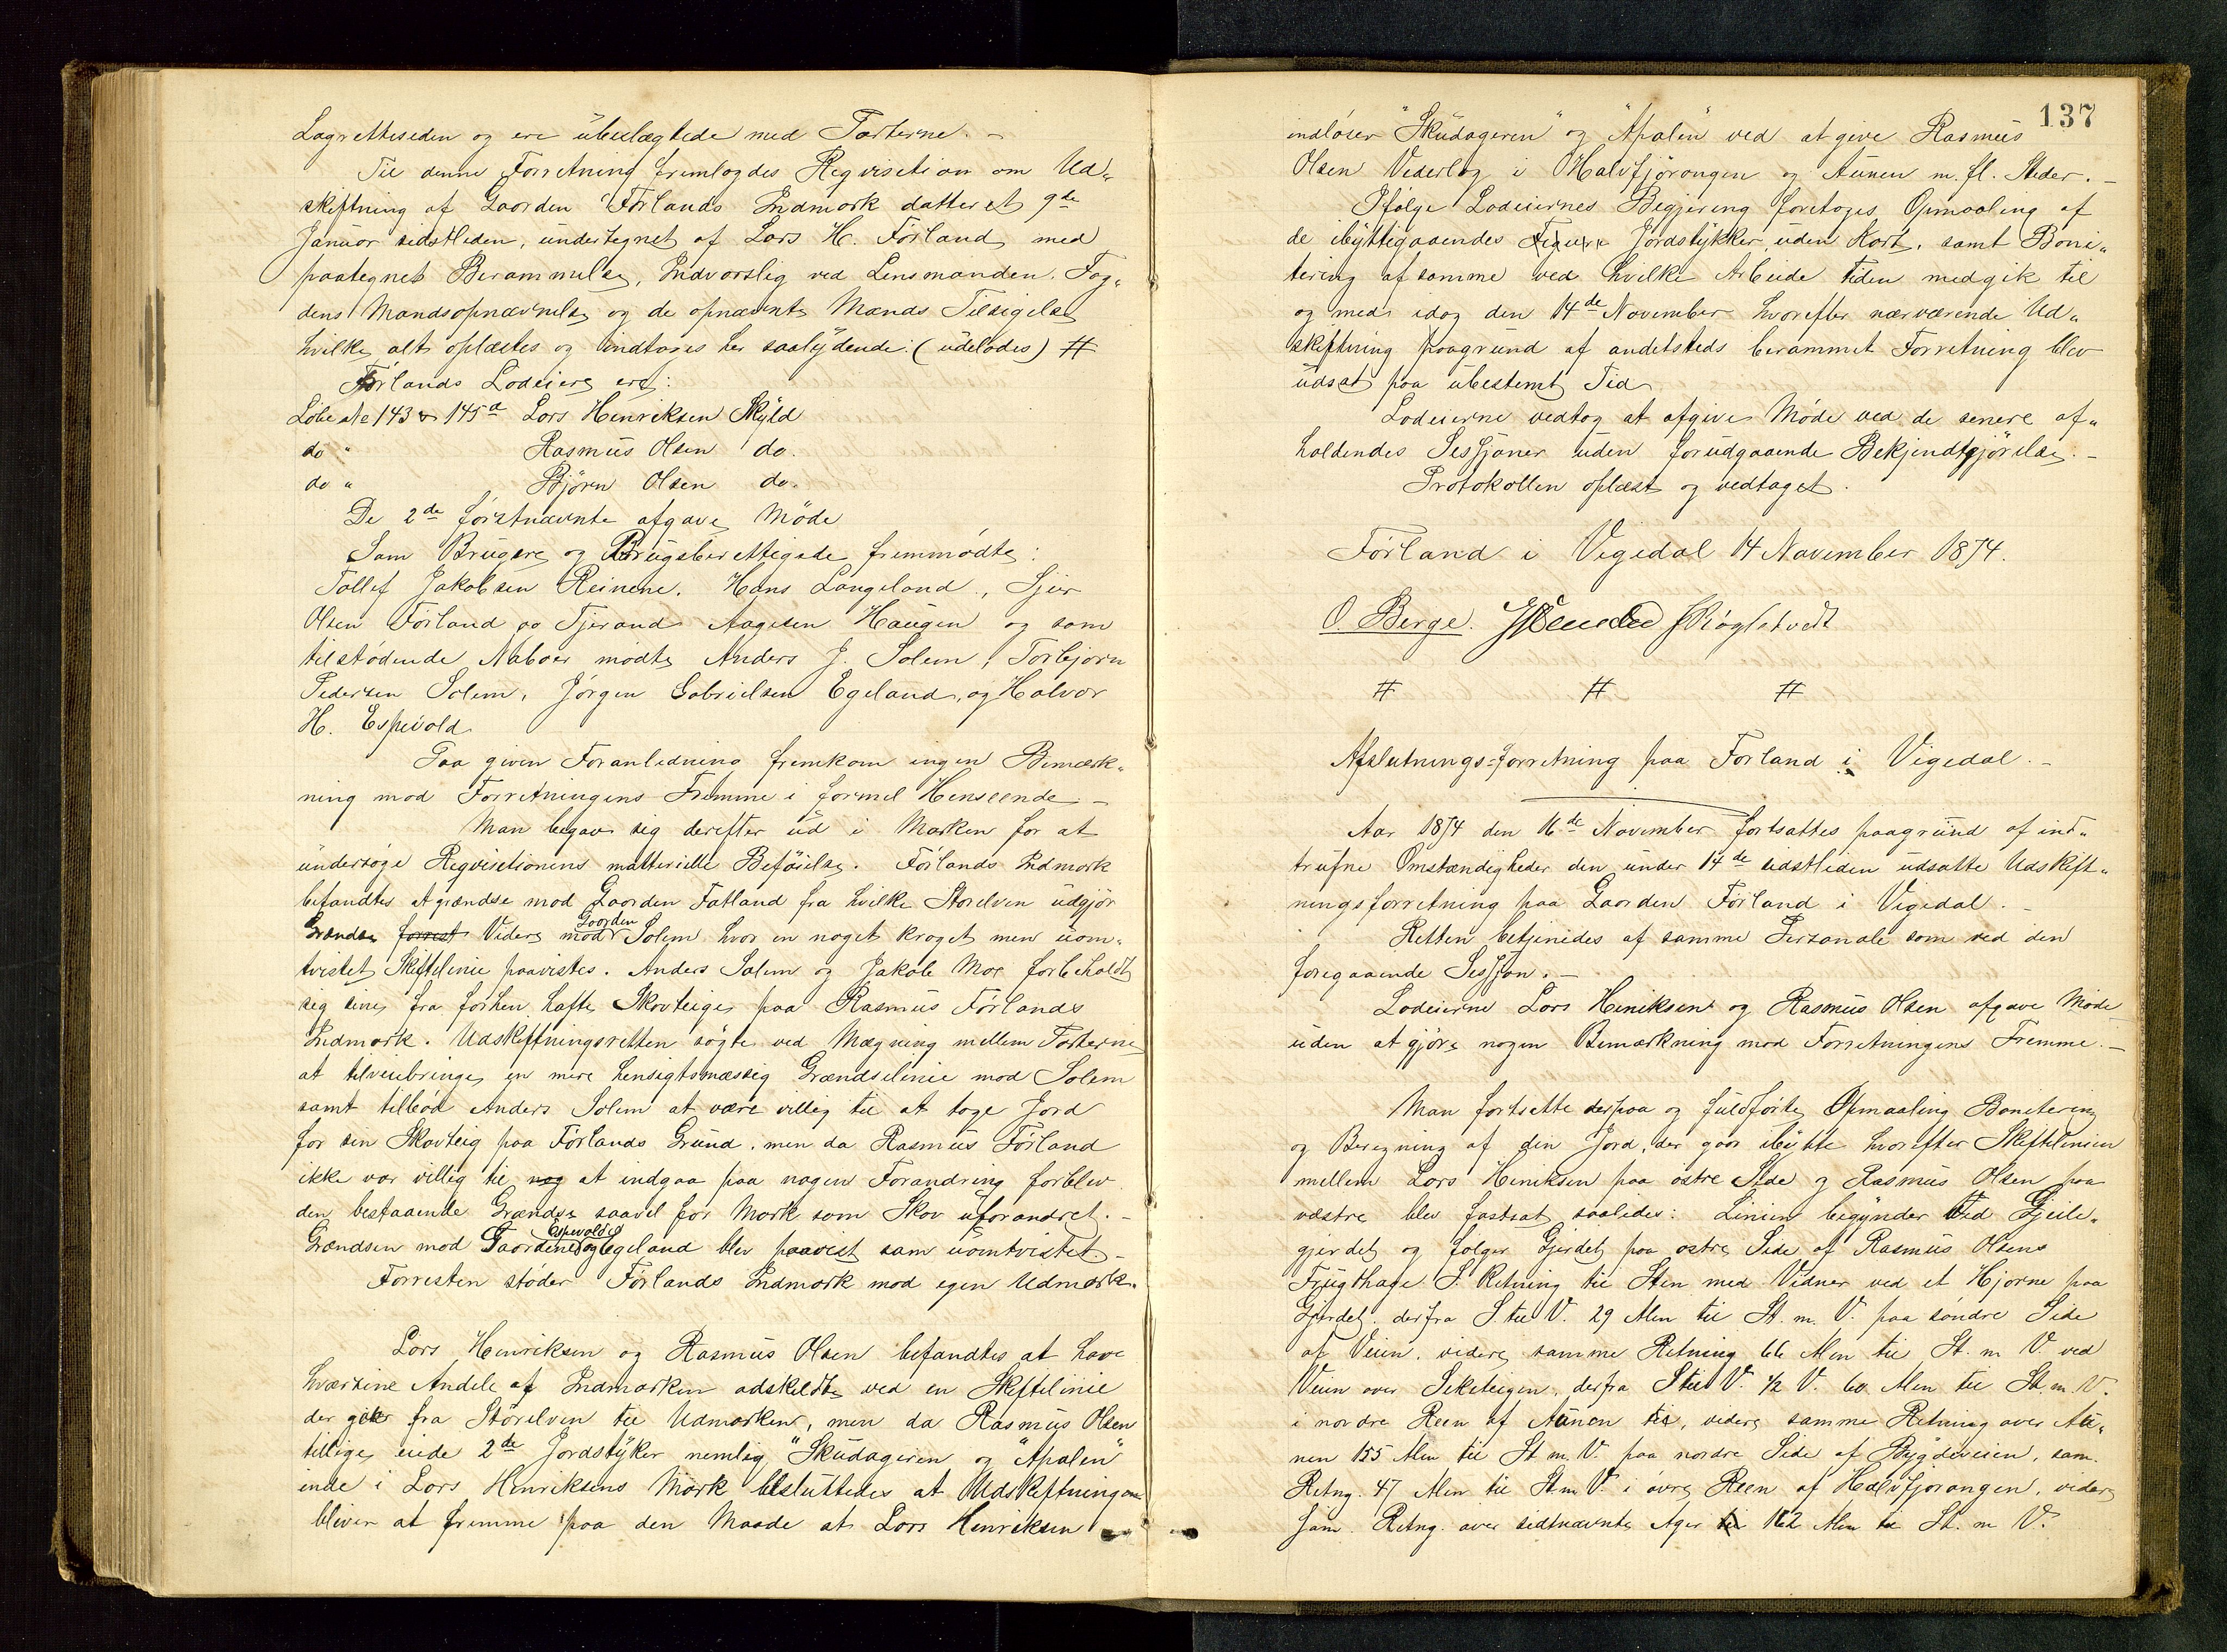 Lagrettesseden og ere übeslægtede med Parterne. –
Til denne Forretning fremlagdes Reqvisition om Ud„
skiftning af Gaarden Førlands Indmark datteret 9de
Januar sidstleden, undertegnet af Lars H. Førland med
paategnet Berammelse, Indvarslig ved Lensmanden. Fog„
dens Mandsopnævnelse og de opnævnte Mænds Tilsigelse
hvilke alt oplæstes og indtages her saalydende: (udelades) #
Førlands Lodeiere ere:
Løbe ate 143 & 145a Lars Henriksen Skyld
do " Rasmus Olsen do.
do " Bjørn Olsen do.
De 2de førstnævnte afgave Møde
Som Brugere og Brugsberettigede fremmødte:
Tollef Jakobsen Reinene, Hans Langeland, Sjur
Olsen Førland og Tjerand Aagesen Haugen og som
tilstødende Naboer mødte Anders J. Solem, Torbjørn
Pedersen Solem, Jørgen Gabrielsen Egeland, og Halvor
H. Espevold
Paa given Foranledning fremkom ingen Bemærk„
ning mod Forretningens Fremme i formel Henseende –
Man begav sig derefter ud i Marken for at
undersøge Reqvisitionens matterielle Beføielse. Førlands Indmark
befandtes at grændse mod Gaarden Fatland fra hvilke Storelven udgjør
Grændse forrest Videre mod Gaarden Solem hvor en noget kroget men uom„
tvistet Skiftelinie paavistes. Anders Solem og Jakob Moe forbeholdt
sig sine fra forhen hafte Skovteige paa Rasmus Førlands
Indmark. Udskiftningsretten søgte ved Mægning mellem Parterne
at tilveiebringe en mere hensigtsmæssig Grændselinie mod Solem
samt tilbød Anders Solem at være villig til at tage Jord
for sin Skovteig paa Førlands Grund, men da Rasmus Førland
ikke var villig til nog at indgaa paa nogen Forandring forblev
den bestaaende Grændse saavel for Mark som Skov uforandret. –
Grændsen mod Gaardene Espevold og Egeland blev paavist som uomtvistet –
Forresten støder Førlands Indmark mod egen Udmark.
Lars Henriksen og Rasmus Olsen befandtes at have
hværsine Andele af Indmarken adskeldte ved en Skiftelinie
der gik fra Storelven til Udmarken, men da Rasmus Olsen
tillige eiede 2de Jordstyker nemlig "Skudageren og "Apalen"
inde i Lars Henriksens Mark besluttedes at Udskiftningen
bliver at fremme paa den Maade at Lars Henriksen
137
indløser "Skudageren" og "Apalen" ved at give Rasmus
Olsen Vederlag i Halvfjørongen og Aunen m. fl. Steder. –
Ifølge Lodeiernes Begjering foretoges Opmaaling af
de ibyttegaaendes Figure Jordstykker uden Kort, samt Boni„
tering af samme ved hvilke Arbeide tiden medgik til
og med idag den 14de November hvorefter nærværende Ud„
skiftning paagrund af andetsteds berammet Forretning blev
udsat paa ubestemt Tid
Lodeierne vedtog at afgive Møde ved de senere af„
holdendes Sessjoner uden forudgaaende Bekjendtgjørelse. –
Protokollen oplæst og vedtaget.
Førland i Vigedal 14 November 1874.
O. Berge.
# # #
Afslutnings=forretning paa Førland i Vigedal. –
Aar 1874 den 16de November fortsattes paagrund af ind„
trufne Omstændigheder den under 14de sidstleden udsatte Udskift„
ningsforretning paa Gaarden Førland i Vigedal. –
Retten betjenedes af samme Personale som ved den
foregaaende Sessjon. –
Lodeierne Lars Henriksen og Rasmus Olsen afgave Møde
uden at gjøre nogen Bemærkning mod Forretningens Fremme. –
Man fortsatte derpaa og fuldførte Opmaaling Bonitering
og Beregning af den Jord, der gaar ibytte hvorefter Skiftelinien
mellem Lars Henriksen paa østre Side og Rasmus Olsen paa
vestre blev fastsat saaledes: Linien begynder ved Gjeile„
gjerdet og følger Gjerdet paa østre Side af Rasmus Olsens
Frugthage S. Retning til Sten med Vidner ved et Hjørne paa
Gjerdet, derfra S. til V. 29 Alen til St. m. V. paa søndre Side
af Veien, videre samme Retning 66 Alen til St. m V. ved
Veien over Seketeigen, derfra S til V. 1/2 V. 60 Alen til St. m. V.
i nordre Reen af Aunen til, videre samme Retning over Au„
nen 155 Alen til St m. V. paa nordre Side af Bygdeveien, sam.
Retng. 47 Alen til St m V. i øvre Reen af Halvfjørongen, videre
sam. Retng. over sidtnævnte Ager til 162 Alen til St. m V.